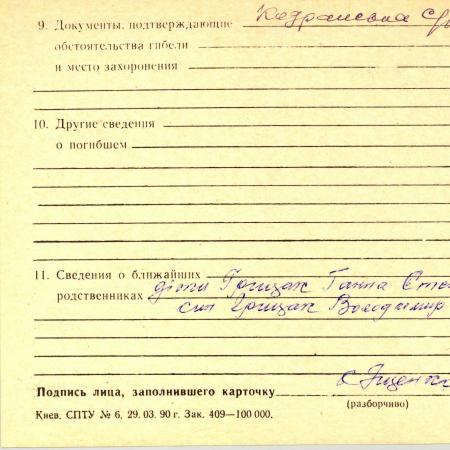 9. Документы, подтверждающие
обстоятельства гибели
и место захоронения
10. Другие сведения
о погибшем
11. Сведения о ближайших
родственниках діти Грицак Ганна Сте
син Грицак Володимир
Подпись лица, заполнившего карточку
(разборчиво)
Киев. СПТУ № 6, 29. 03. 90 г. Зак. 409—100 000.